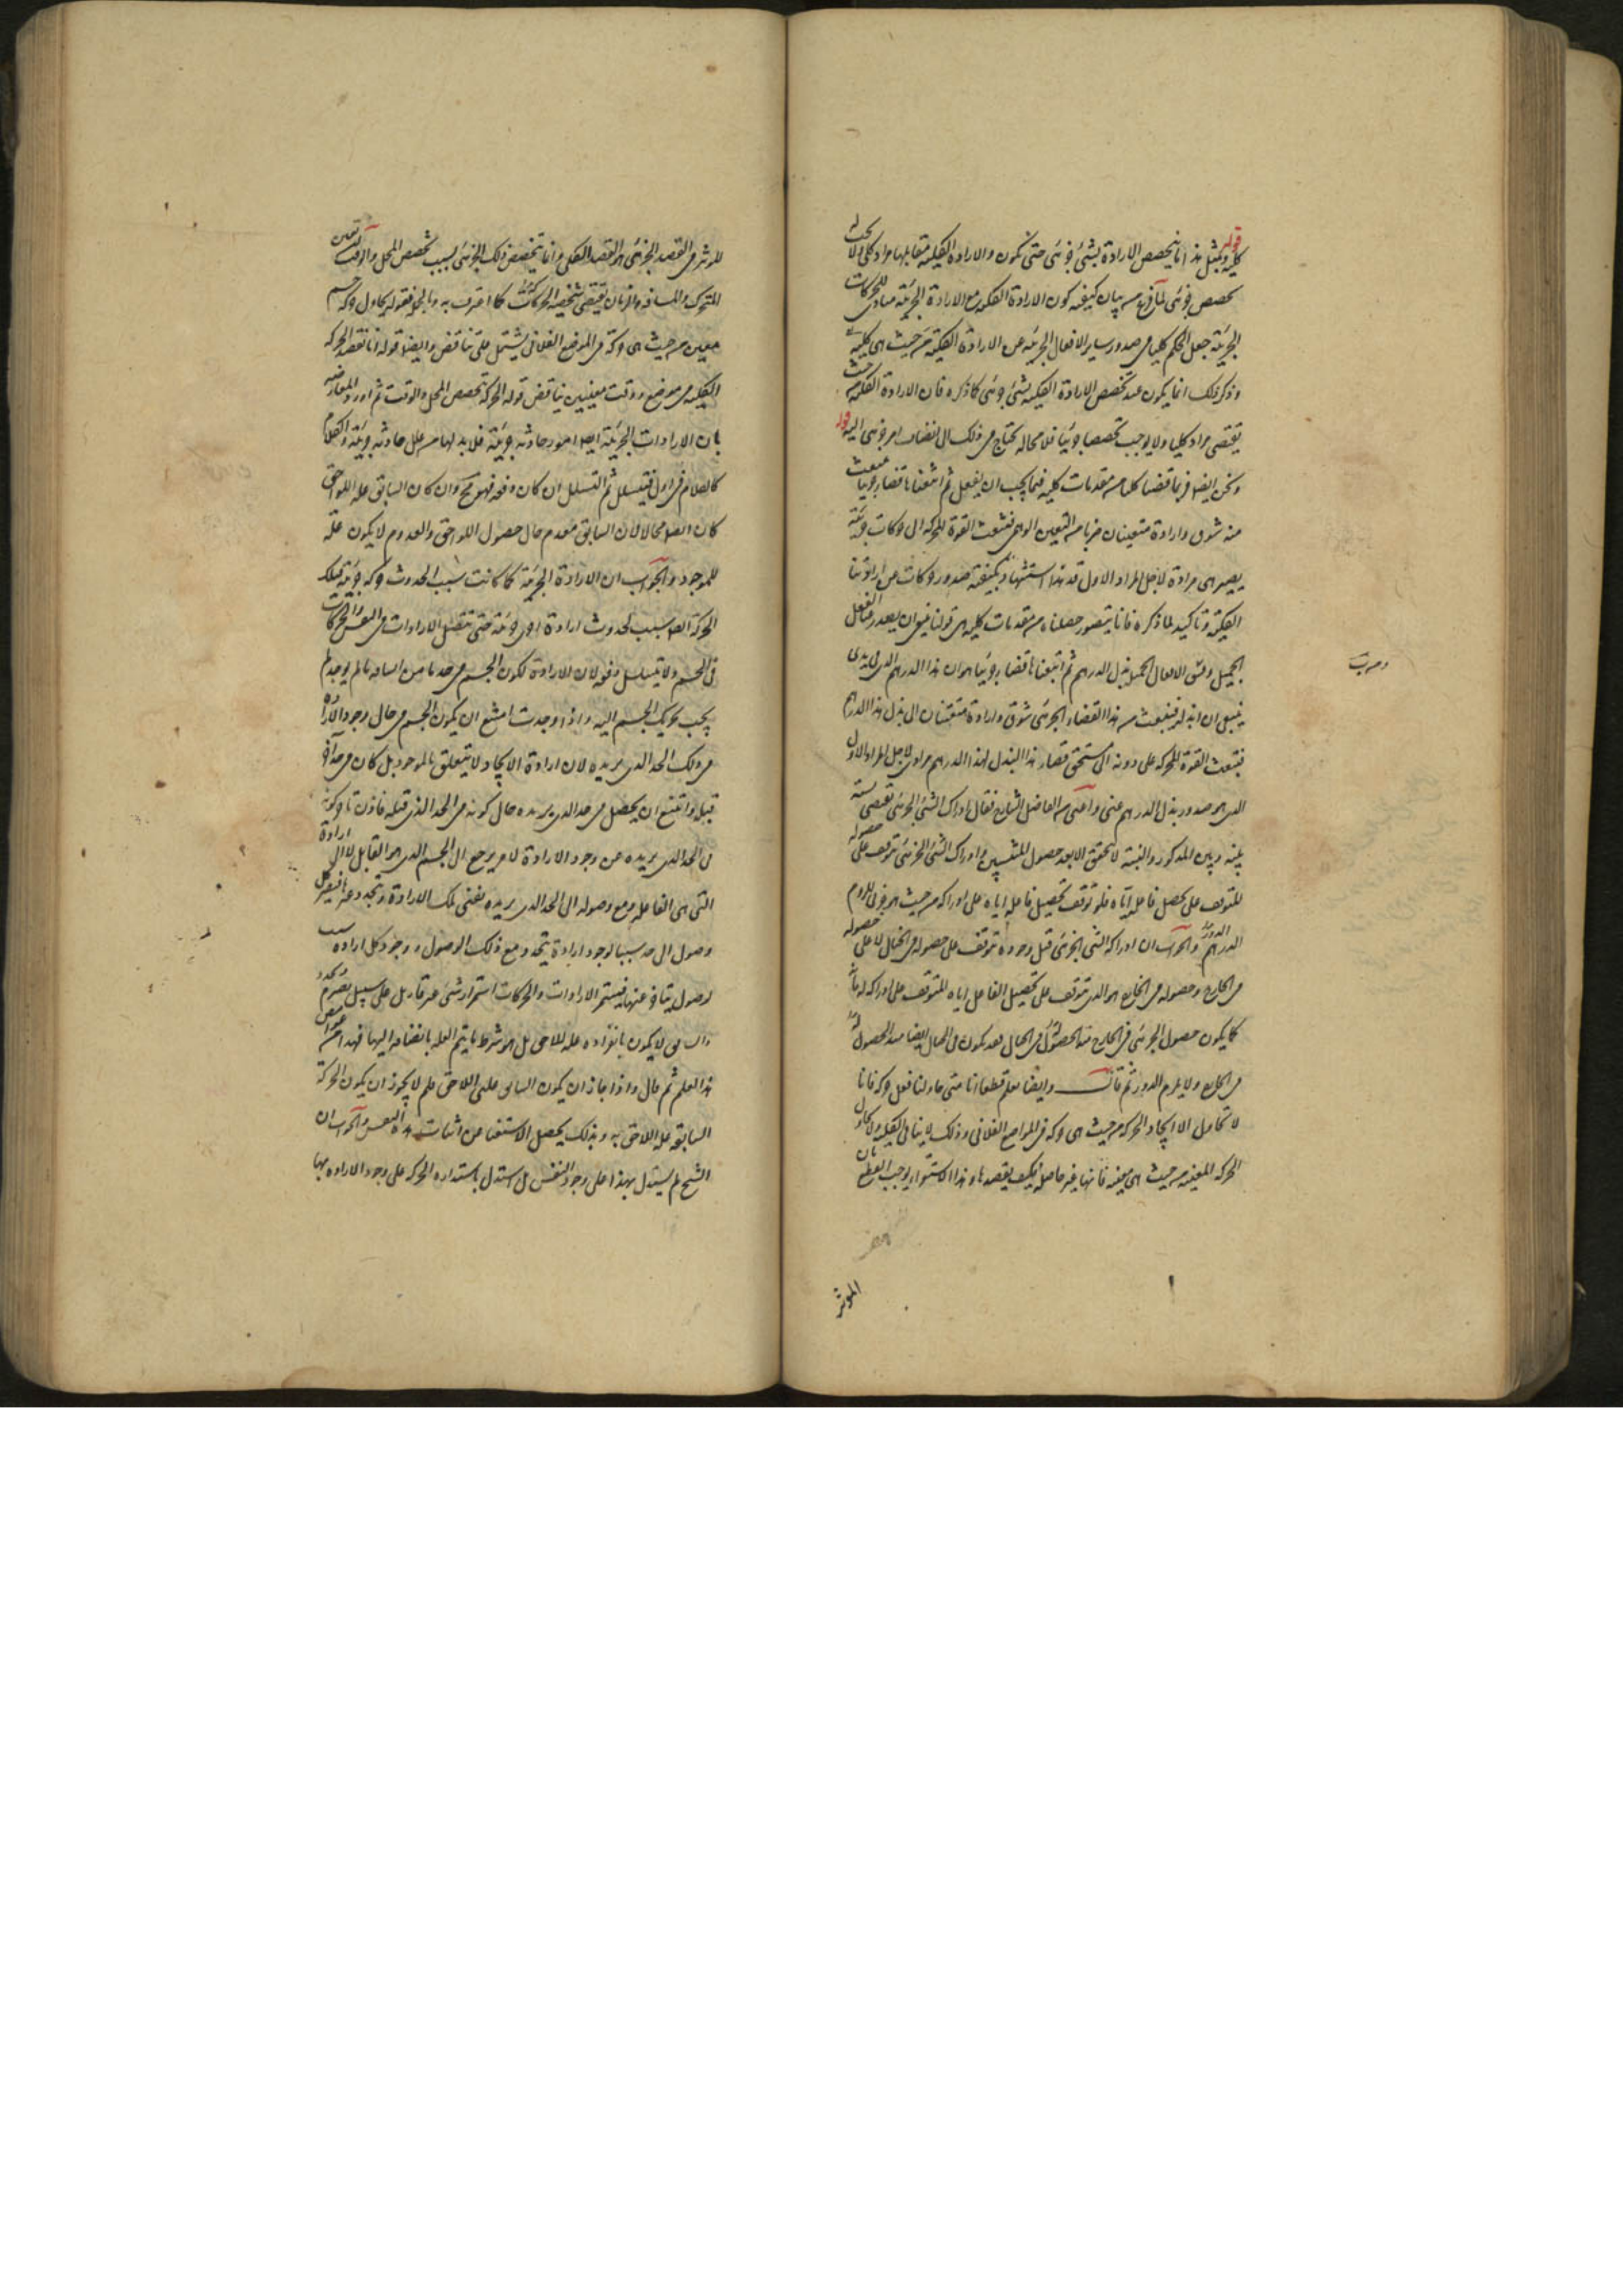 قوله
كلية وبمثل هذا انما يتخصص الارادة بشئ جزئى حتى تكون والارادة الكلية مقابلها مراد كلى ولا يجب له
تخصص جزئى لما فرغ من بيان كيفية كون الارادة الكلية مع الارادة الجزئية مبادى للحركات
الجزئية جعل الحكم كليا فى صدور ساير الافعال الجزئية عن الارادة الكلية من حيث هى كلية
وذكر ذلك انما يكون عند تخصص الارادة الكلية بشئ جزئى كما ذكره فان الارادة الكلية من حيث
تقتضى مرادا كليا ولا يوجب تخصصا جزئيا فلا محالة يحتاج فى ذلك الى انضياف امر جزئى اليه قوله
ونحن ايضا فربما قضينا كليا من مقدمات كلية فيما يجب ان يفعل ثم اتبعناه قضاء جزئيا ينبعث
منه شوق وارادة متعينان ضربا من التعين الوهمى فتنبعث القوة المحركة الى حركات جزئية
يصير هى مرادة لاجل المراد الاول قد هذا استشهاد بكيفية صدور حركات عن ارادتنا
الكلية وتاكيد لما ذكره فانا نتصور حصلناه من مقدمات كلية هى قولنا ينبغى ان يصدر منا الفعل
الجميل ومن الافعال الجميلة بذل الدرهم ثم اتبعناه قضاء جزئيا هو ان هذا الدرهم الذى فى يدى
ينبغى ان ابذله فينبعث من هذا القضاء الجزئى شوق وارادة متعينان الى بذل هذا الدرهم
فتنبعث القوة المحركة على دفعه الى مستحق فصار هذا البذل لهذا الدرهم مرادى لاجل المراد الاول
الذى هو صدور بذل الدرهم عنى واعترض الفاضل الشارح فقال ادراك الشئ الجزئى تقتضى نسبة
بينه وبين المدرك والنسبة لا تتحقق الا بعد حصول المنتسبين وادراك الشئ الجزئى متوقف على حصوله
المتوقف على تحصيل فاعله اياه فلو توقف تحصيل فاعله اياه على ادراكه من حيث هو جزئى للزم
الدور والجواب ان ادراك الشئ الجزئى قبل وجوده يتوقف على حصوله فى الخيال لا على حصوله
فى الخارج وحصوله فى الخارج هو الذى يتوقف على تحصيل الفاعل اياه المتوقف على ادراكه له فانه
كما يكون حصول الجزئى فى الخارج مبدأ لحصوله فى الخيال فقد يكون فى الخيال ايضا مبدأ لحصوله
فى الخارج ولا يلزم الدور ثم قال وايضا نعلم قطعا انا متى حاولنا فعل حركة فانا
لا نحاول الا ايجاد الحركة من حيث هى حركة فى الموضع الفلانى وذلك لا ينافى الكلية ولا نحاول
الحركة المعينة من حيث هى معينة فانها غير حاصلة فكيف نقصدها وهذا الاستقراء يوجب القطع بان
المؤثر
للمؤثر فى القصد الجزئى هو القصد الكلى وانما يتخصص ذلك الجزئى بسبب تخصص المحل والوقت
المتحرك والمسافة والزمان يقتضى شخصية الحركات كما اعترف به وبالجملة فقوله نحاول حركة جسم
معين من حيث هى حركة فى الموضع الفلانى يشتمل على تناقض وايضا قوله انا نقصد الحركة
الكلية فى موضع ووقت معينين يناقض قوله الحركة تخصص المحل والوقت ثم اورد المعارضة
بان الارادات الجزئية ايضا امور حادثة جزئية فلا بد لها من علل حادثة جزئية والكلام
كالكلام فى الاول فيتسلسل ثم التسلسل ان كان دفعة فهو مح وان كان السابق علة اللاحق
كان ايضا محالا لان السابق معدوم حال حصول اللاحق والمعدوم لا يكون علة
للموجود والجواب ان الارادة الجزئية كما كانت سبب لحدوث حركة جزئية فتلك
الحركة ايضا سبب لحدوث ارادة اخرى جزئية حتى تتصل الارادات فى النفس والحركات
فى الجسم ولا يتسلسل دفعة لان الارادة لكون الجسم فى حد ما من المسافة ما لم يوجد لم
يجب تحريك الجسم اليه واذا وجدت امتنع ان يكون الجسم فى حال وجود الارادة
فى ذلك الحد الذى يريده لان ارادة الايجاد لا يتعلق بالموجود بل كان فى حد آخر
قبله وامتنع ان يحصل فى حد الذى يريده حال كونه فى الحد الذى قبله فاذن تأخر كونه
فى الحد الذى يريده عن وجود الارادة لامر يرجع الى الجسم الذى هو القابل لا الى الارادة
التى هى الفاعلة ومع وصوله الى الحد الذى يريده يفنى تلك الارادة ويتجدد غيرها فيصير كل
وصول الى حد سببا لوجود ارادة يتجدد مع ذلك الوصول ووجود كل ارادة سبب
لوصول يتأخر عنها فيستمر الارادات والحركات استمرار شئ غير قار بل على سبيل تصرم وتجدد
والسابق لا يكون بانفراده علة للاحق بل هو شرط ما يتم العلة بانضيافه اليها فهذا من غوامض
هذا العلم ثم قال واذا جاز ان يكون السابق علة اللاحق فلم لا يجوز ان يكون الحركة
السابقة علة اللاحقة وبذلك يحصل الاستغناء عن اثبات هذه النفس والجواب ان
الشيخ لم يستدل بهذا على وجود النفس بل استدل باستدارة الحركة على وجود الارادة بها